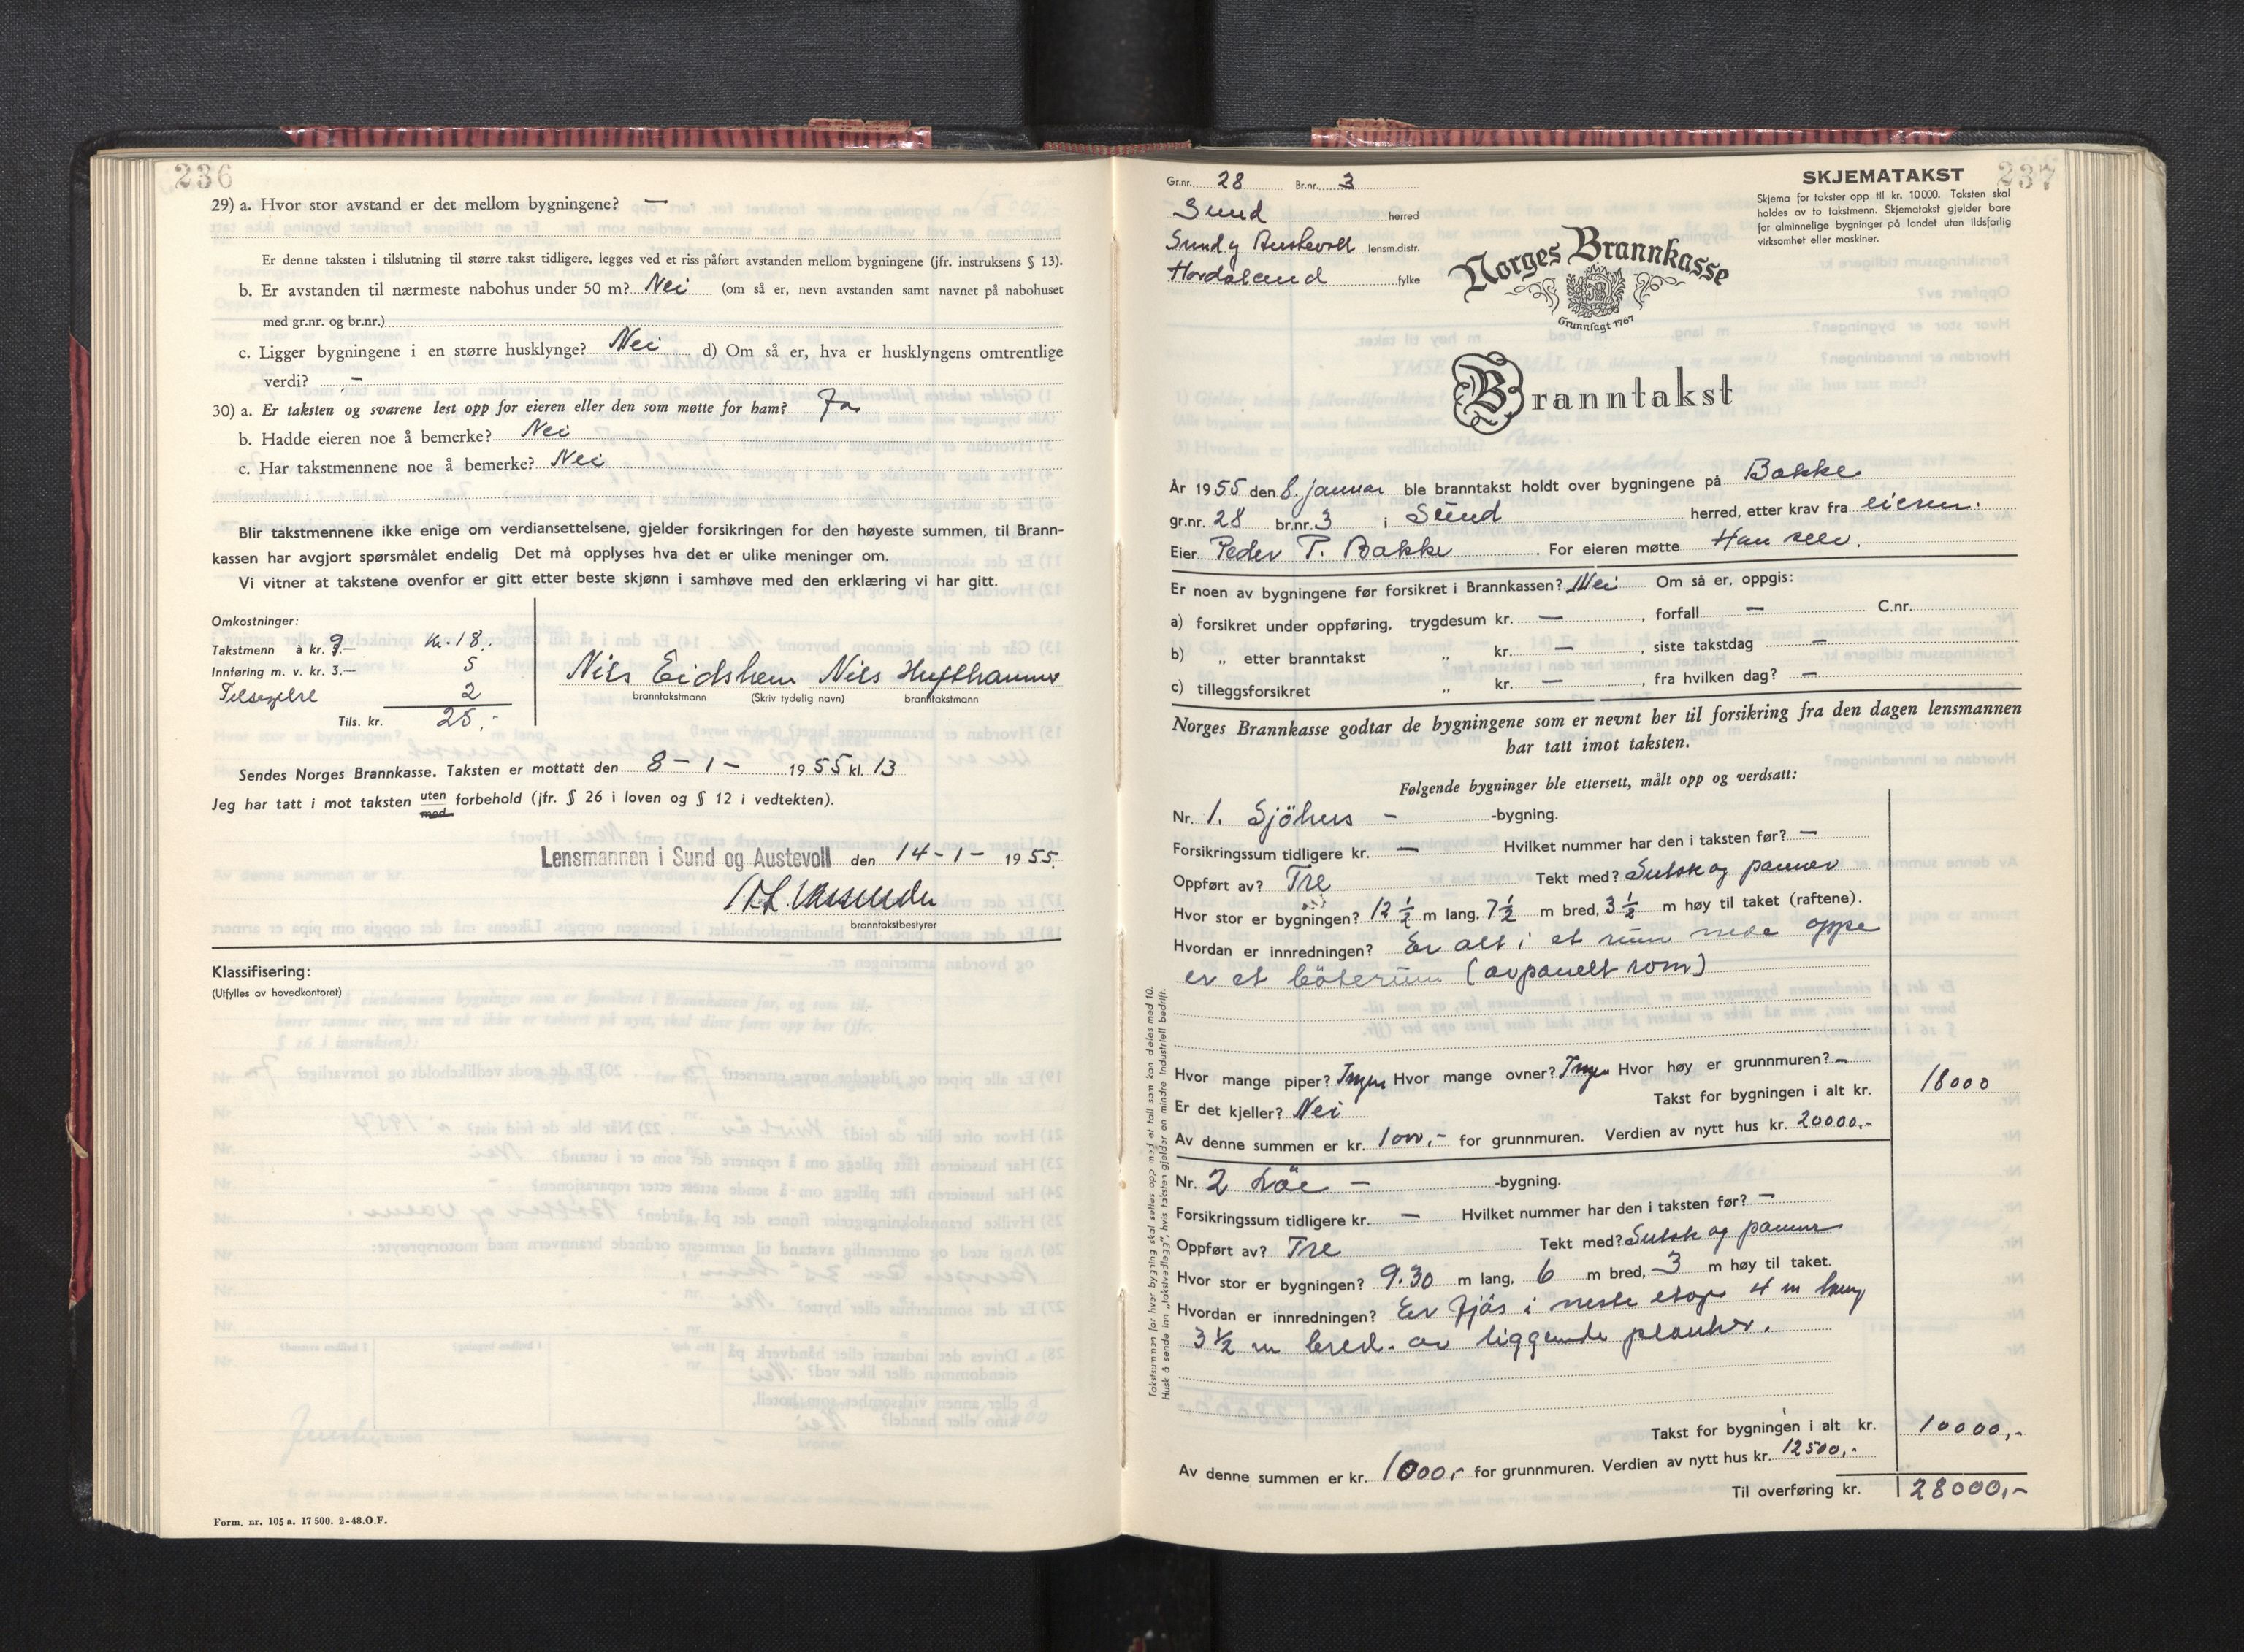 236
29) a. Hvor stor avstand er det mellom bygningene? —
Er denne taksten i tilslutning til større takst tidligere, legges ved et riss påført avstanden mellom bygningene (jfr. instruksens § 13).
b. Er avstanden til nærmeste nabohus under 50 m? Nei (om så er, nevn avstanden samt navnet på nabohuset
med gr.nr. og br.nr.)
c. Ligger bygningene i en større husklynge? Nei d) Om så er, hva er husklyngens omtrentlige
verdi? —
30) a. Er taksten og svarene lest opp for eieren eller den som møtte for ham? Ja
b. Hadde eieren noe å bemerke? Nei
c. Har takstmennene noe å bemerke? Nei
Blir takstmennene ikke enige om verdiansettelsene, gjelder forsikringen for den høyeste summen, til Brann-
kassen har avgjort spørsmålet endelig Det må opplyses hva det er ulike meninger om.
Vi vitner at takstene ovenfor er gitt etter beste skjønn i samhøve med den erklæring vi har gitt.
Omkostninger:
Takstmenn à kr. 9.— kr. 18.
Innføring m. v. kr. 3.— 5
2
Tils. kr. 25,-
Nils Eidsheim Nils Hufthammer
branntakstmann (Skriv tydelig navn) branntakstmann
Sendes Norges Brannkasse. Taksten er mottatt den 8 – 1 – 1955 kl. 13
Jeg har tatt i mot taksten uten forbehold (jfr. § 26 i loven og § 12 i vedtekten).
med
Lensmannen i Sund og Austevoll den 14 – 1 – 1955.
branntakstbestyrer
Klassifisering:
(Utfylles av hovedkontoret)
Form. nr. 105 a. 17 500. 2-48. O.F.
237
Gr.nr. 28 Br.nr. 3
Sund herred
Sund og Austevoll lensm.distr.
Hordaland fylke
SKJEMATAKST
Skjema for takster opp til kr. 10000. Taksten skal
holdes av to takstmenn. Skjematakst gjelder bare
for alminnelige bygninger på landet uten ildsfarlig
virksomhet eller maskiner.
Norges Brannkasse
Grunnlagt 1767
Branntakst
År 1955 den 8. januar ble branntakst holdt over bygningene på Bakke
gr.nr. 28 br.nr. 3 i Sund herred, etter krav fra eieren.
Eier Peder P. Bakke For eieren møtte Han selv.
Er noen av bygningene før forsikret i Brannkassen? Nei Om så er, oppgis:
a) forsikret under oppføring, trygdesum kr. — , forfall — C.nr.
b) „ etter branntakst „ kr. — , siste takstdag —
c) tilleggsforsikret „ kr. — , fra hvilken dag? —
Norges Brannkasse godtar de bygningene som er nevnt her til forsikring fra den dagen lensmannen
har tatt imot taksten.
Følgende bygninger ble ettersett, målt opp og verdsatt:
Nr. 1. Sjöhus – -bygning.
Forsikringssum tidligere kr. — Hvilket nummer har den i taksten før? —
Oppført av? Tre Tekt med? Sutak og panner
Hvor stor er bygningen? 12 ½ m lang, 7 ½ m bred, 3 ½ m høy til taket (raftene).
Hvordan er innredningen? Er alt i et rum nede oppe
er et böterum (avpanelt rom)
Hvor mange piper? Ingen Hvor mange ovner? Ingen Hvor høy er grunnmuren? —
Er det kjeller? Nei Takst for bygningen i alt kr. 18000
Av denne summen er kr. 1000,- for grunnmuren. Verdien av nytt hus kr. 20000.-
Nr. 2 Löe – -bygning.
Forsikringssum tidligere kr. — Hvilket nummer har den i taksten før? —
Oppført av? Tre Tekt med? Sutak og panner
Hvor stor er bygningen? 9.30 m lang, 6 m bred, 3 m høy til taket.
Hvordan er innredningen? Er fjös i neste etage 4 m lang
3 ½ m bred. av liggende planker.
Takst for bygningen i alt kr. 10000,-
Av denne summen er kr. 1000,- for grunnmuren. Verdien av nytt hus kr. 12500,-
Til overføring kr. 28000,-
Takstsummen for hver bygning skal settes opp med et tall som kan deles med 10.
Husk å sende inn „takstvedlegg", hvis taksten gjelder en mindre industriell bedrift.